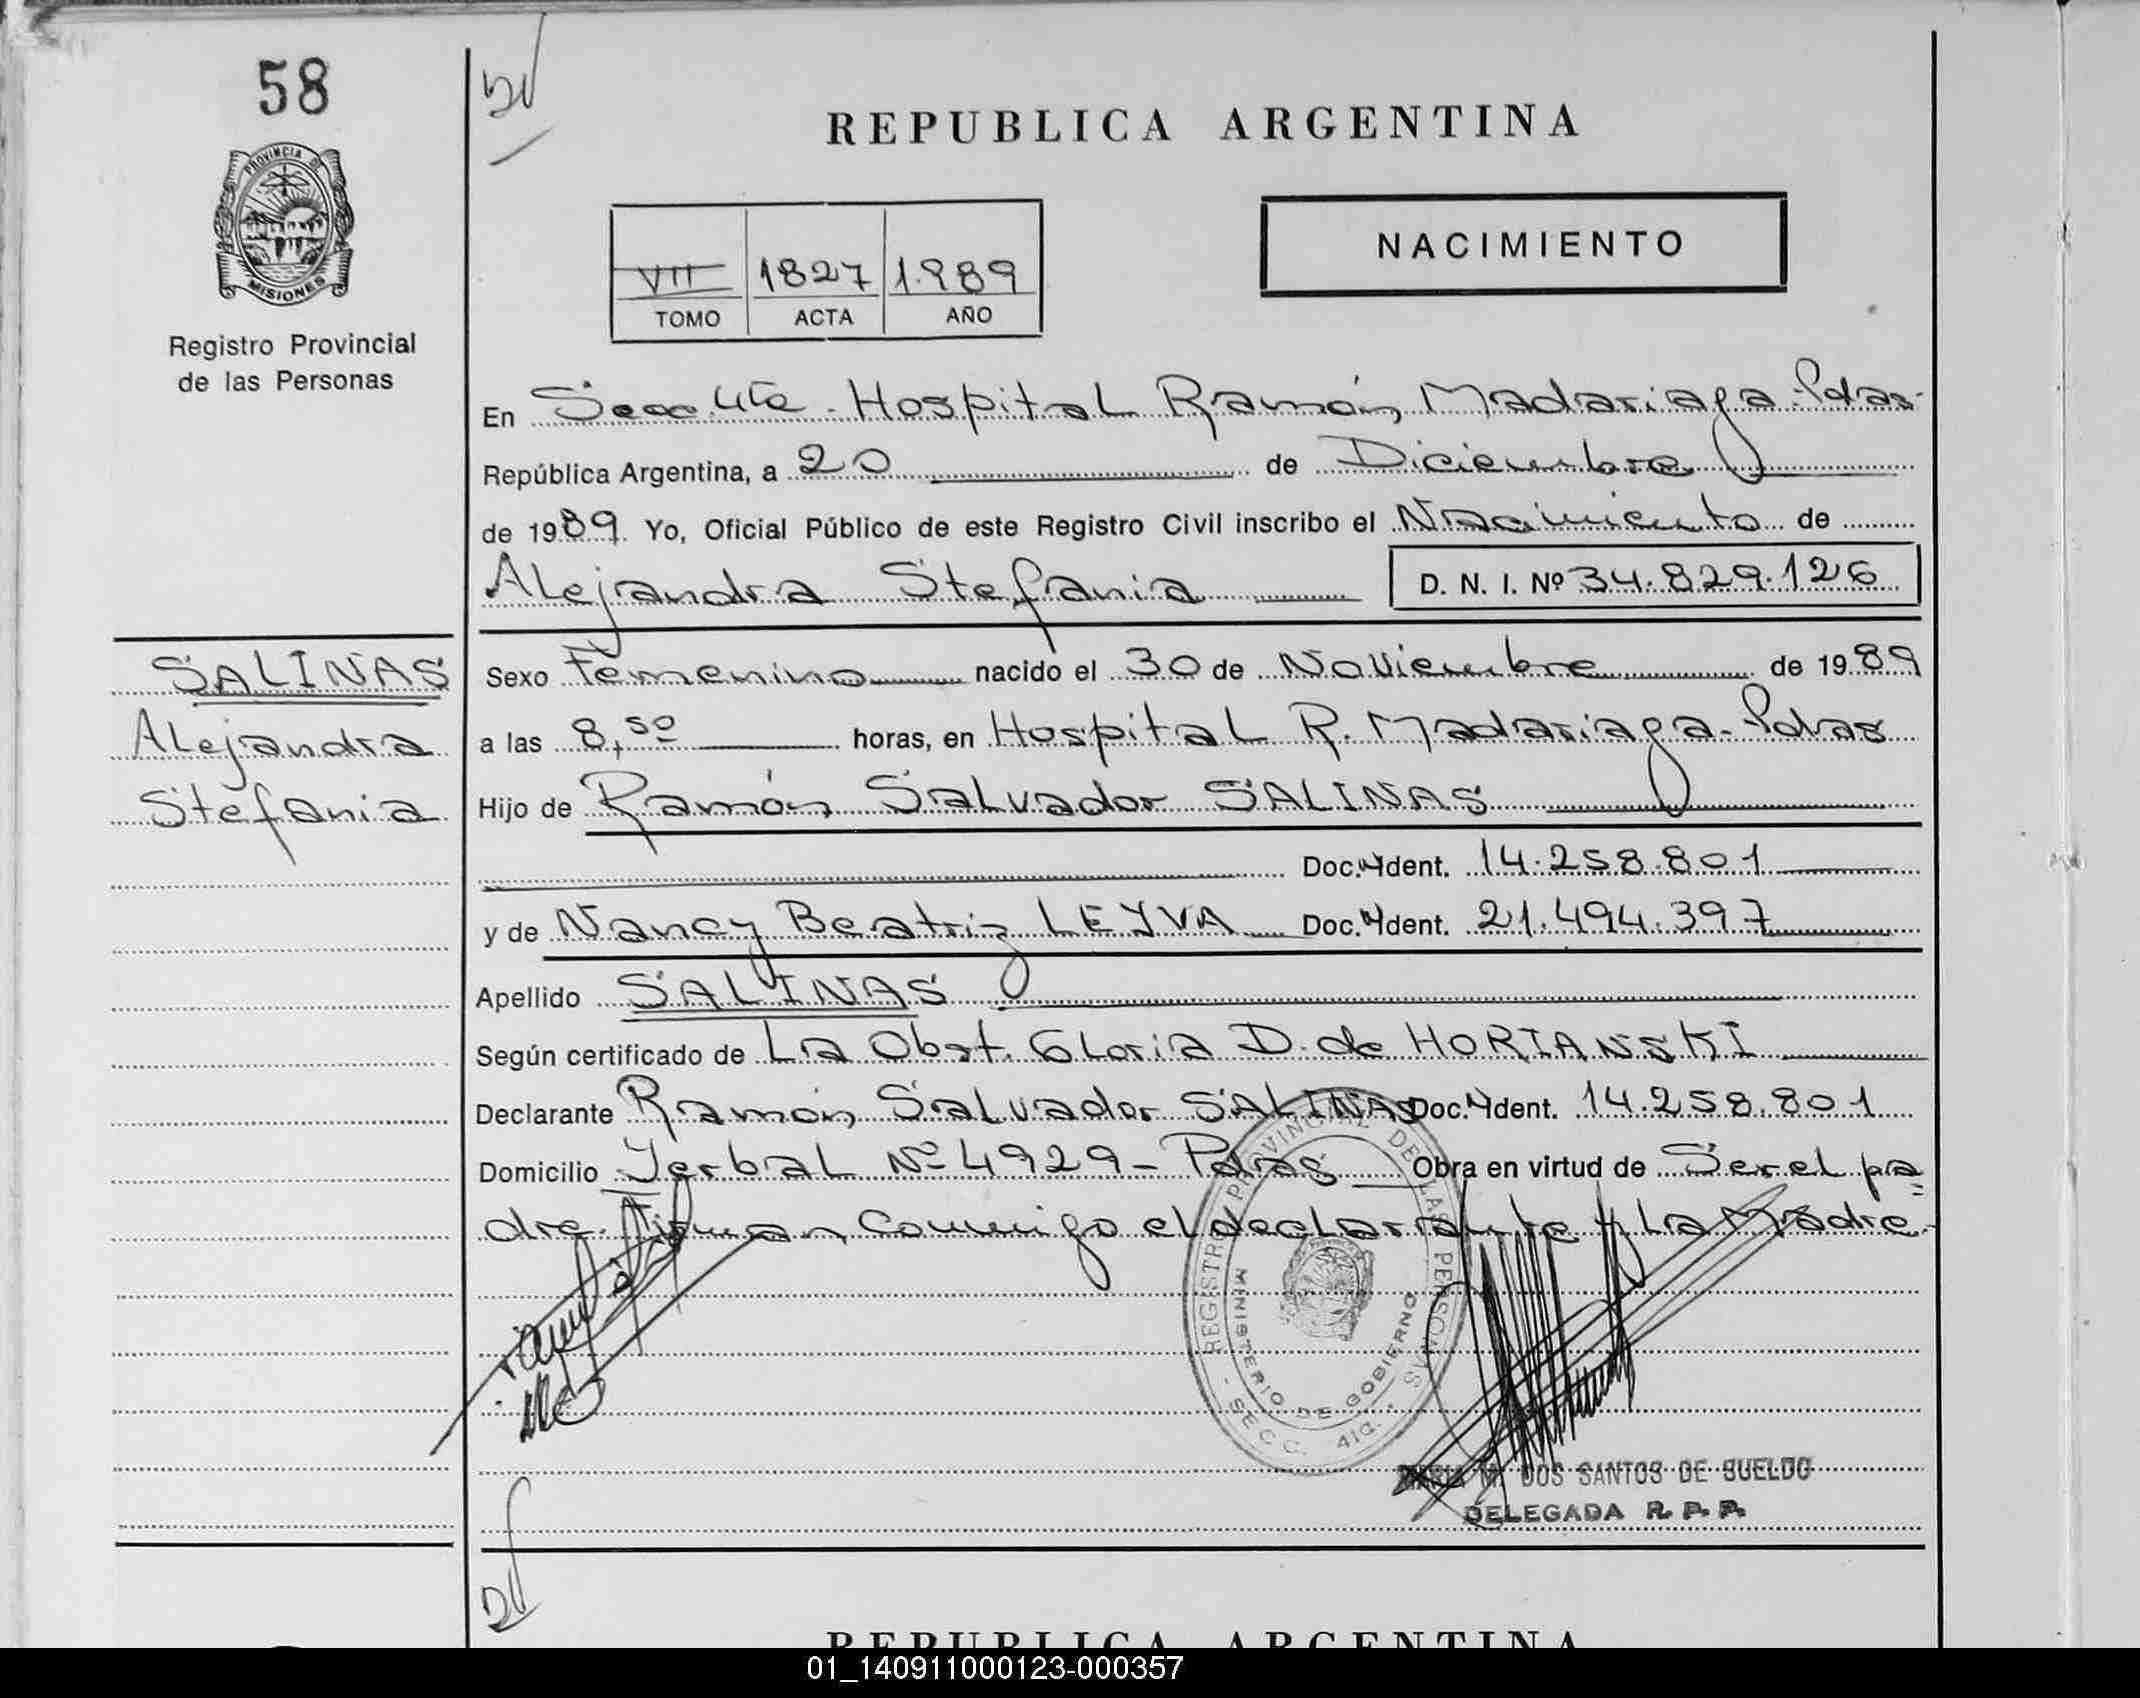 58
PROVINCIA DE
MISIONES
Registro Provincial
de las Personas
SALINAS
Alejandra
Stefania
REPUBLICA ARGENTINA
VII 1827 1.989
TOMO ACTA AÑO
NACIMIENTO
En Secc. 4ta. Hospital Ramón Madariaga-Pdas-
República Argentina, a 20 de Diciembre
de 1989. Yo, Oficial Público de este Registro Civil inscribo el Nacimiento de
Alejandra Stefania D. N. I. Nº 34.829.126
Sexo Femenino nacido el 30 de Noviembre de 1989
a las 8,50 horas, en Hospital R. Madariaga-Pdas
Hijo de Ramón Salvador SALINAS
Doc. Ident. 14.258.801
y de Nancy Beatriz LEYVA Doc. Ident. 21.494.397
Apellido SALINAS
Según certificado de La Obst. Gloria D. de HORIANSKI
Declarante Ramón Salvador SALINAS Doc. Ident. 14.258.801
Domicilio Yerbal Nº 4929 - Pdas Obra en virtud de Ser el pa=
dre. Firman conmigo el declarante y La Madre.
REGISTRO PROVINCIAL DE LAS PERSONAS
MINISTERIO DE GOBIERNO
- SECC. 4ta. -
MARIA M. DOS SANTOS DE SUELDO
DELEGADA R. P. P.
REPUBLICA ARGENTINA
01_140911000123-000357